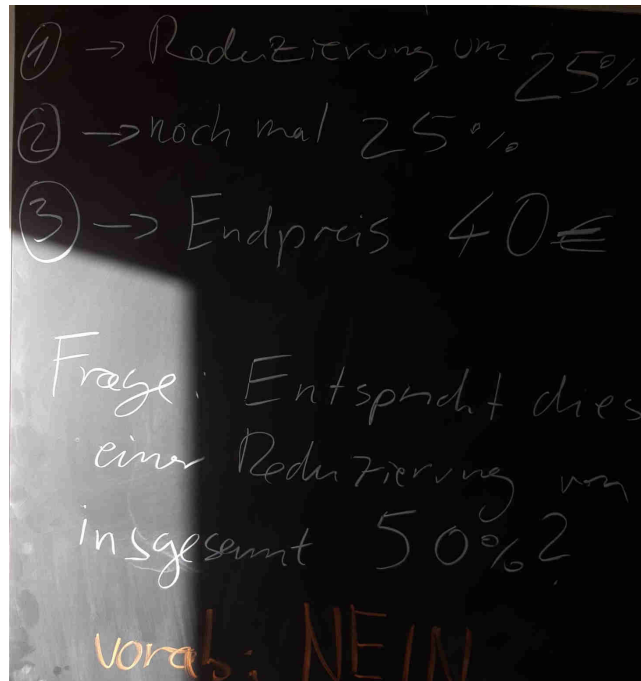 ① → Reduzierung um 25%
② → noch mal 25%
③ → Endpreis 40€
Frage: Entspricht dies
einer Reduzierung von
insgesamt 50%?
vorab: NEIN